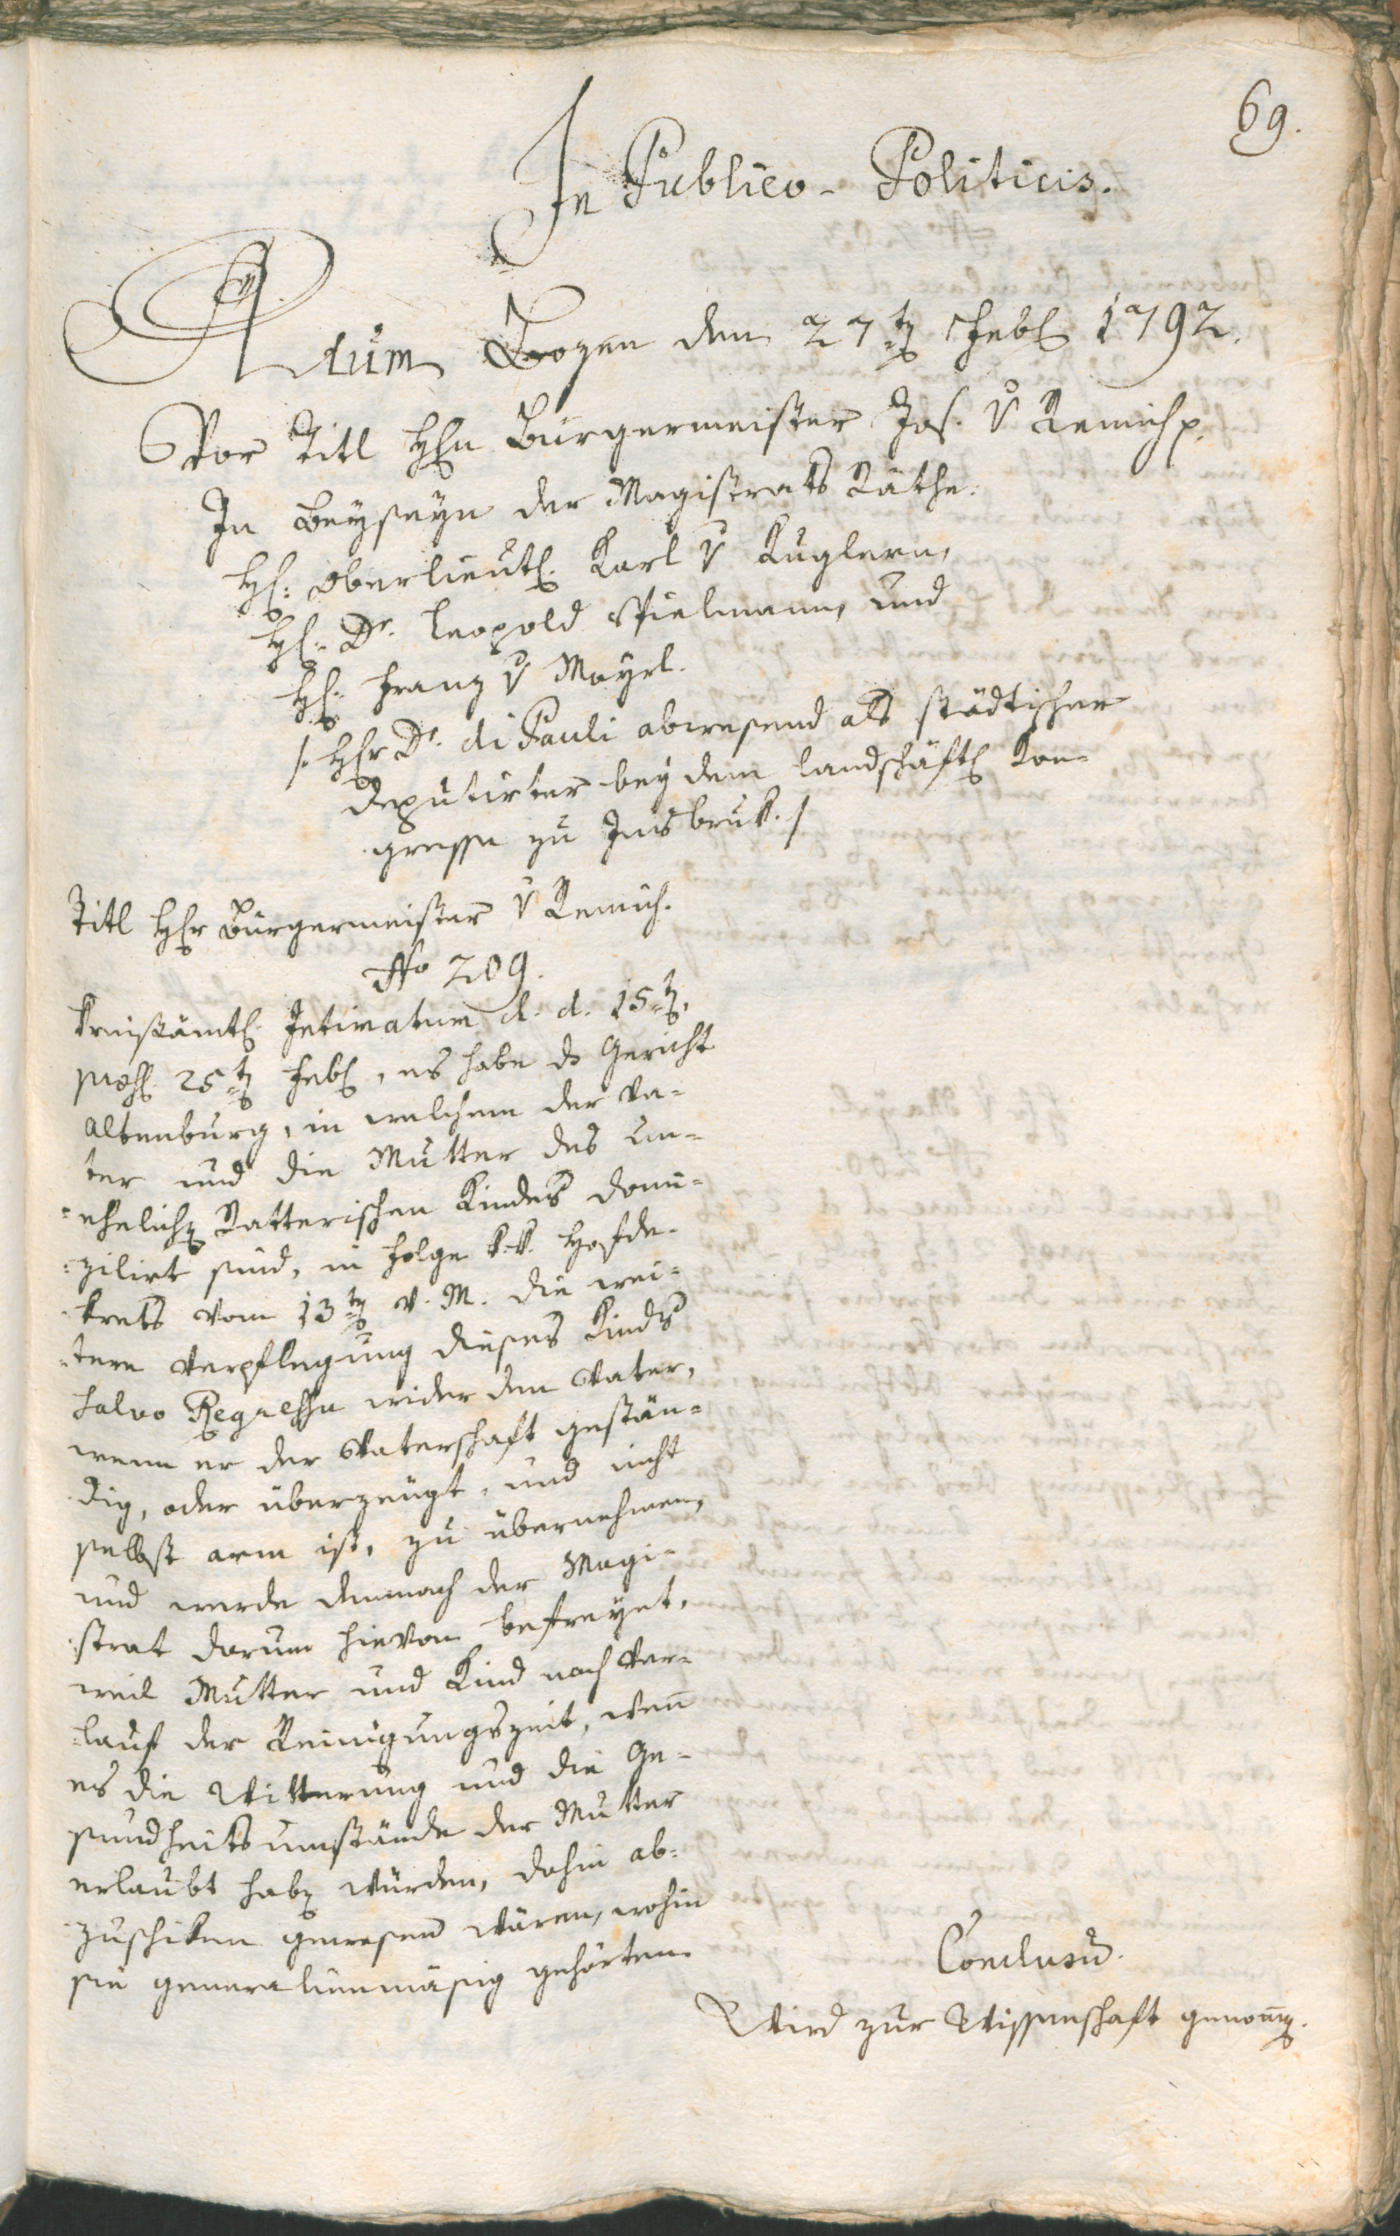 69.
In Publico-Politicis.
Actum Bozen den 27t. Febr. 1792.
Vor Titl Hrn Bürgermeister Jos. v Remich p.
In Beyseyn der Magistrats Räthe.
Hr: Oberlieut. Karl v Kuglern,
Hr: Dr. Leopold Spielmann, und
Hr: Franz v Mayrl.
/: Herr Dr. di Pauli abwesend als städtischer
Deputirter bey dem landschäftl. Kon-
gresse zu Innsbruk. /
Titl Herr Bürgermeister v Remich.
No 209.
Kreisämtl. Intimatum d. d. 15t.
præs. 25t. Febr., es habe ds Gericht
Altenburg, in welchem der Va-
ter und die Mutter des un-
=ehelich. Ratterischen Kindes domi-
=zilirt sind, in Folge k. k. Hofde-
krets vom 13t. v. M. die wei-
=tere Verpflegung dieses Kinds
salvo Regressu wider den Vater,
wenn er der Vaterschaft gestän-
dig, oder überzeugt, und nicht
selbst arm ist, zu übernehmen,
und werde demnach der Magi-
strat darum hievon befreyet,
weil Mutter und Kind nach Ver-
lauf der Reinigungszeit, wen̄
es die Witterung und die Ge-
sundheitsumstände der Mutter
erlaubt hab. würden, dahin ab-
zuschiken gewesen wären, wohin
sie generalienmäsig gehörten.
Conclusū.
Wird zur Wissenschaft genom̄.